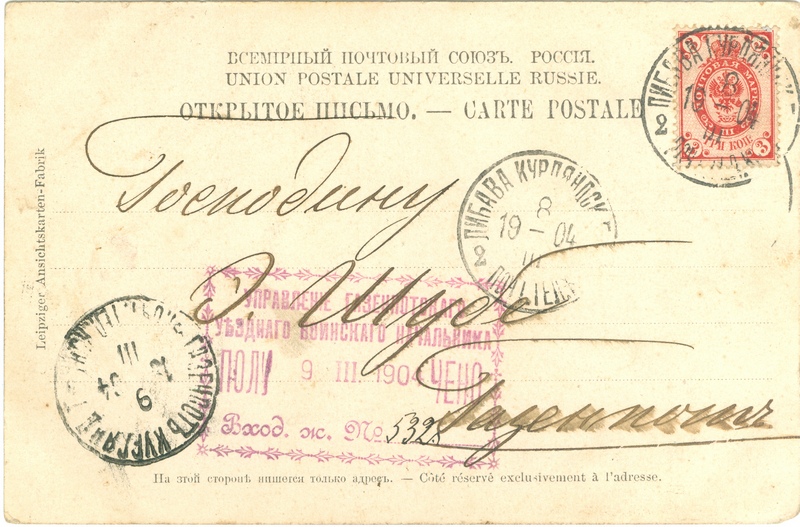 ВСЕМІРНЫЙ ПОЧТОВЫЙ СОЮЗЪ. РОССІЯ.
UNION POSTALE UNIVERSELLE RUSSIE.
ОТКРЫТОЕ ПИСЬМО. — CARTE POSTALE
3
ТРИ КОП.
3
Leipziger Ansichtskarten-Fabrik
Господину
ЛИБАВА КУРЛЯНДСК.
8
19 – 04
III
2
Э. Шубе
УПРАВЛЕНІЕ ГАЗЕНПОТСКАГО
УѢЗДНАГО ВОИНСКАГО НАЧАЛЬНИКА
ПОЛУ 9 III. 1904 ЧЕНО
Вход. ж. № 5328
Газенпотъ
III
9
На этой сторонѣ пишется только адресъ. — Côté réservé exclusivement à l'adresse.